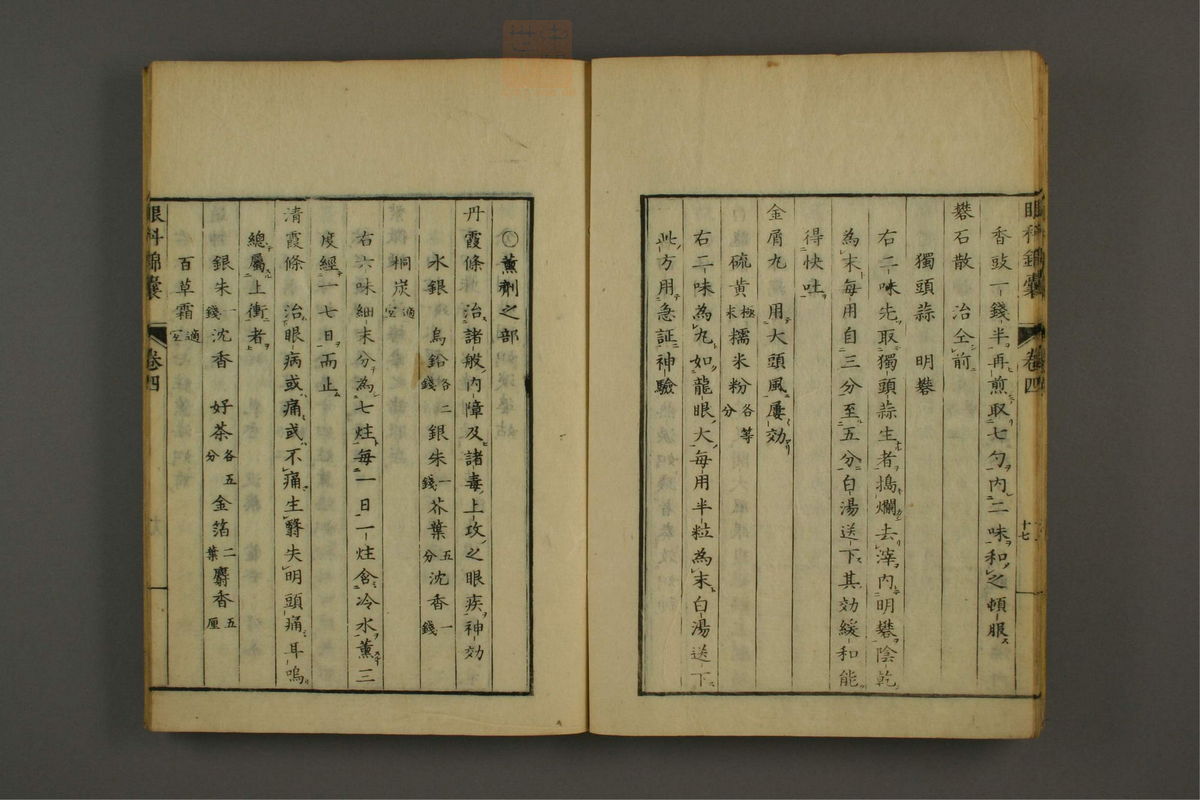 眼科錦囊 卷四 十七
香豉一錢半再煎取七勺內二味和之頓服
礬石散 治仝前
獨頭蒜 明礬
右二味先取獨頭蒜生者搗爛去滓內明礬陰乾
為末每用自三分至五分白湯送下其効緩和能
得快吐
金屑丸 用大頭風屢効
硫黄極末 糯米粉各等分
右二味為丸如龍眼大每用半粒為末白湯送下
此方用急証神驗
○薰劑之部
丹霞條 治諸般內障及諸毒上攻之眼疾神効
水銀 烏鉛各二錢 銀朱一錢 芥葉五分 沈香一錢
桐炭適宜
右六味細末分為七炷每一日一炷含冷水薰三
度經一七日而止
清霞條 治眼病或痛或不痛生翳失明頭痛耳鳴
總屬上衝者
銀朱一錢 沈香 好茶各五分 金箔二葉 麝香五厘
百草霜適宜
眼科錦囊 卷四